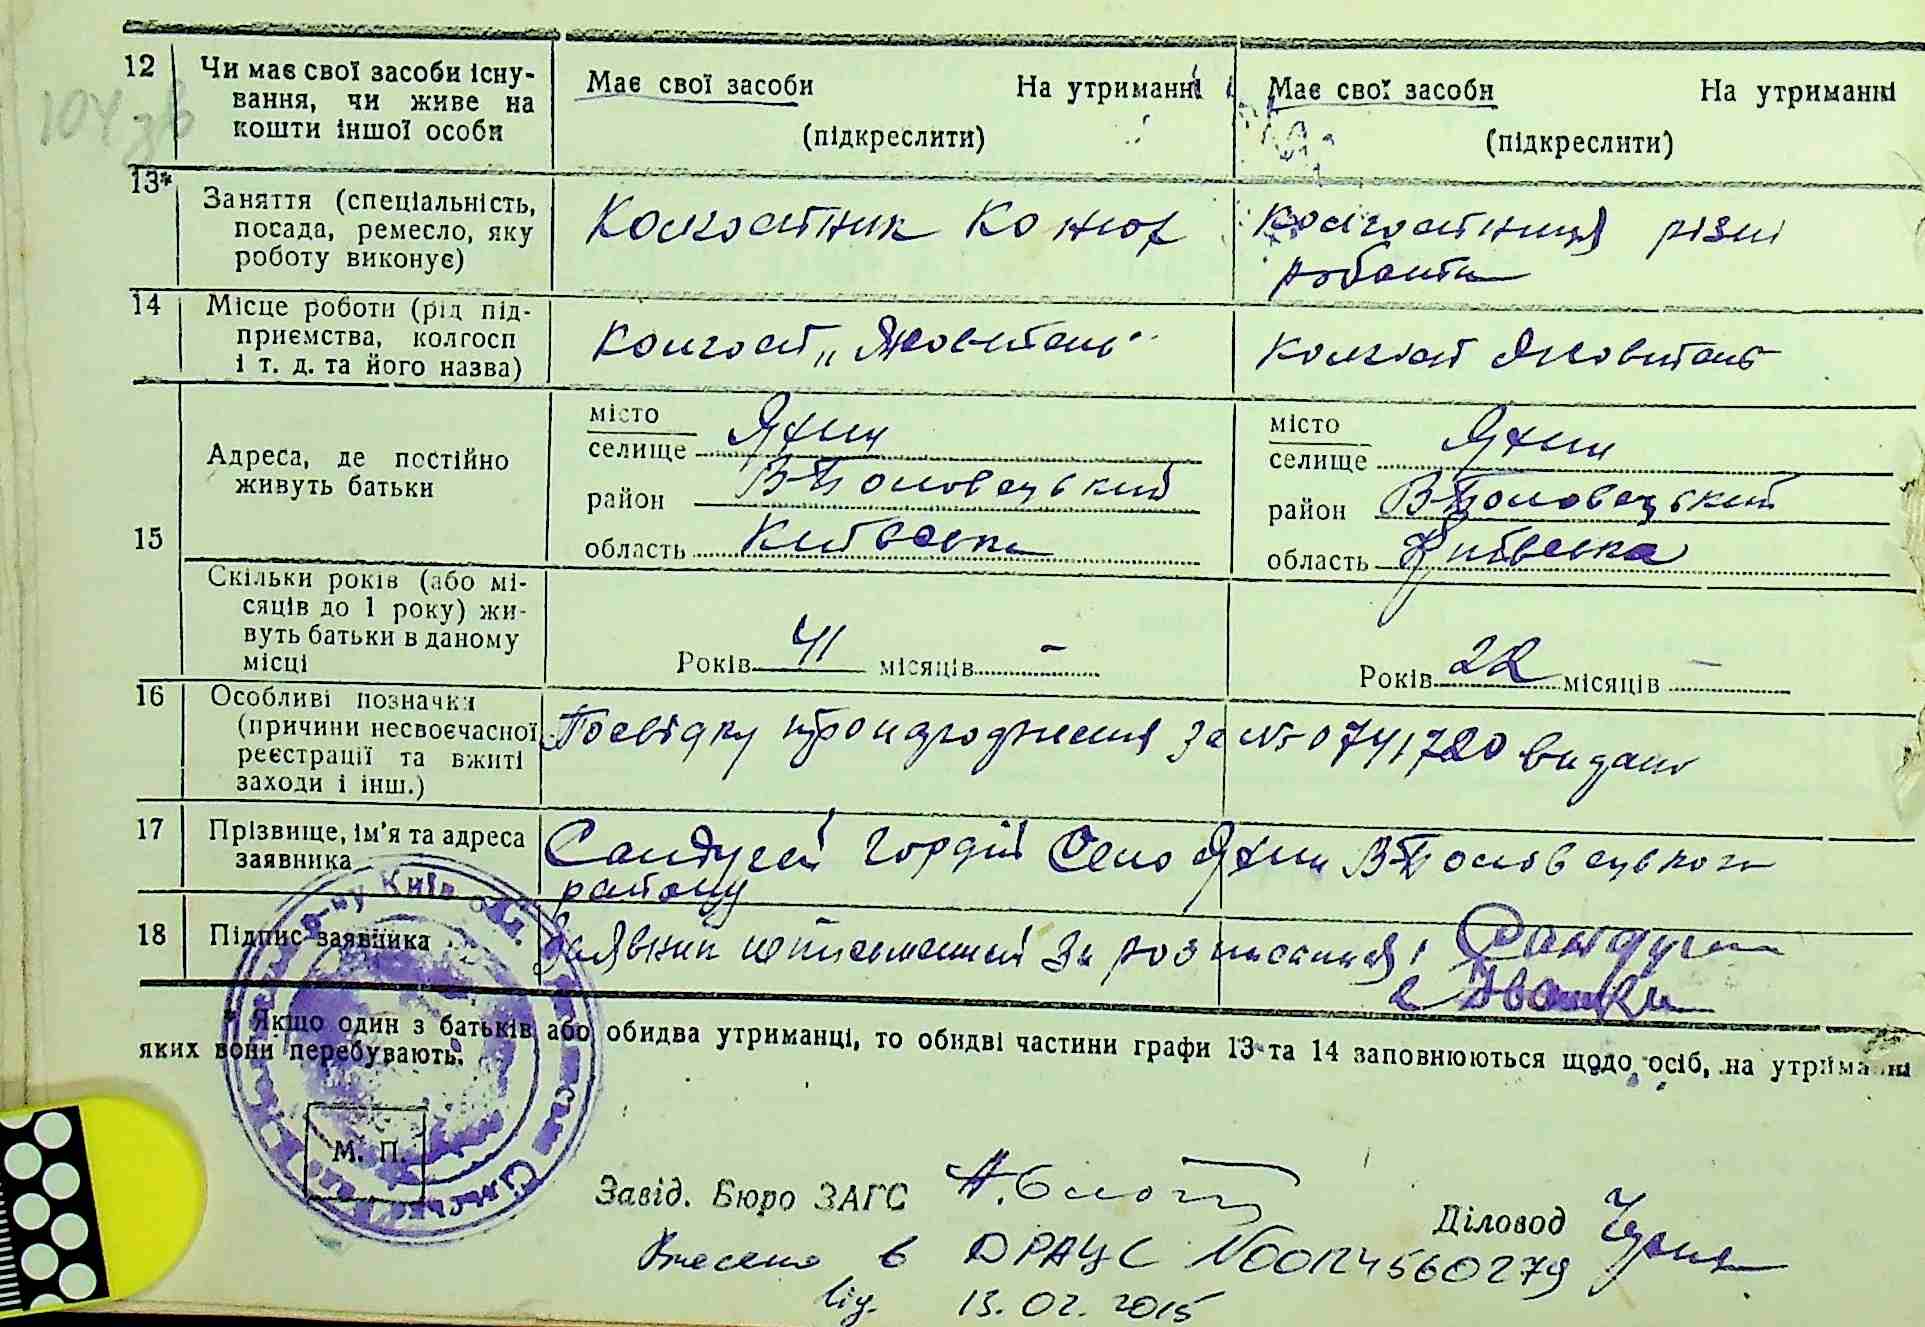 104 зв
12 Чи має свої засоби існу-
вання, чи живе на
кошти іншої особи
Має свої засоби На утриманні
(підкреслити)
Має свої засоби На утриманні
(підкреслити)
13* Заняття (спеціальність,
посада, ремесло, яку
роботу виконує)
Колгоспник Конюх
Колгоспниця різні
роботи
14 Місце роботи (рід під-
приємства, колгосп
і т. д. та його назва)
Колгосп „Жовтень"
Колгосп Жовтень
15 Адреса, де постійно
живуть батьки
місто
селище Яхни
район В-Половецький
область Київська
місто
селище Яхни
район В-Половецький
область Київська
Скільки років (або мі-
сяців до 1 року) жи-
вуть батьки в даному
місці
Років 41 місяців –
Років 22 місяців –
16 Особливі позначки
(причини несвоєчасної
реєстрації та вжиті
заходи і інш.)
Посвідку про народження за № 0741720 видано
17 Прізвище, ім'я та адреса
заявника
Сандугей Гордій Село Яхни В-Половецького
району
18 Підпис заявника
Заявник неписьменний За розписався
* Якщо один з батьків або обидва утриманці, то обидві частини графи 13 та 14 заповнюються щодо осіб, на утриманні
яких вони перебувають.
М. П.
Завід. Бюро ЗАГС
Діловод
Внесено в ДРАЦС №00124560279
від. 13.02.2015